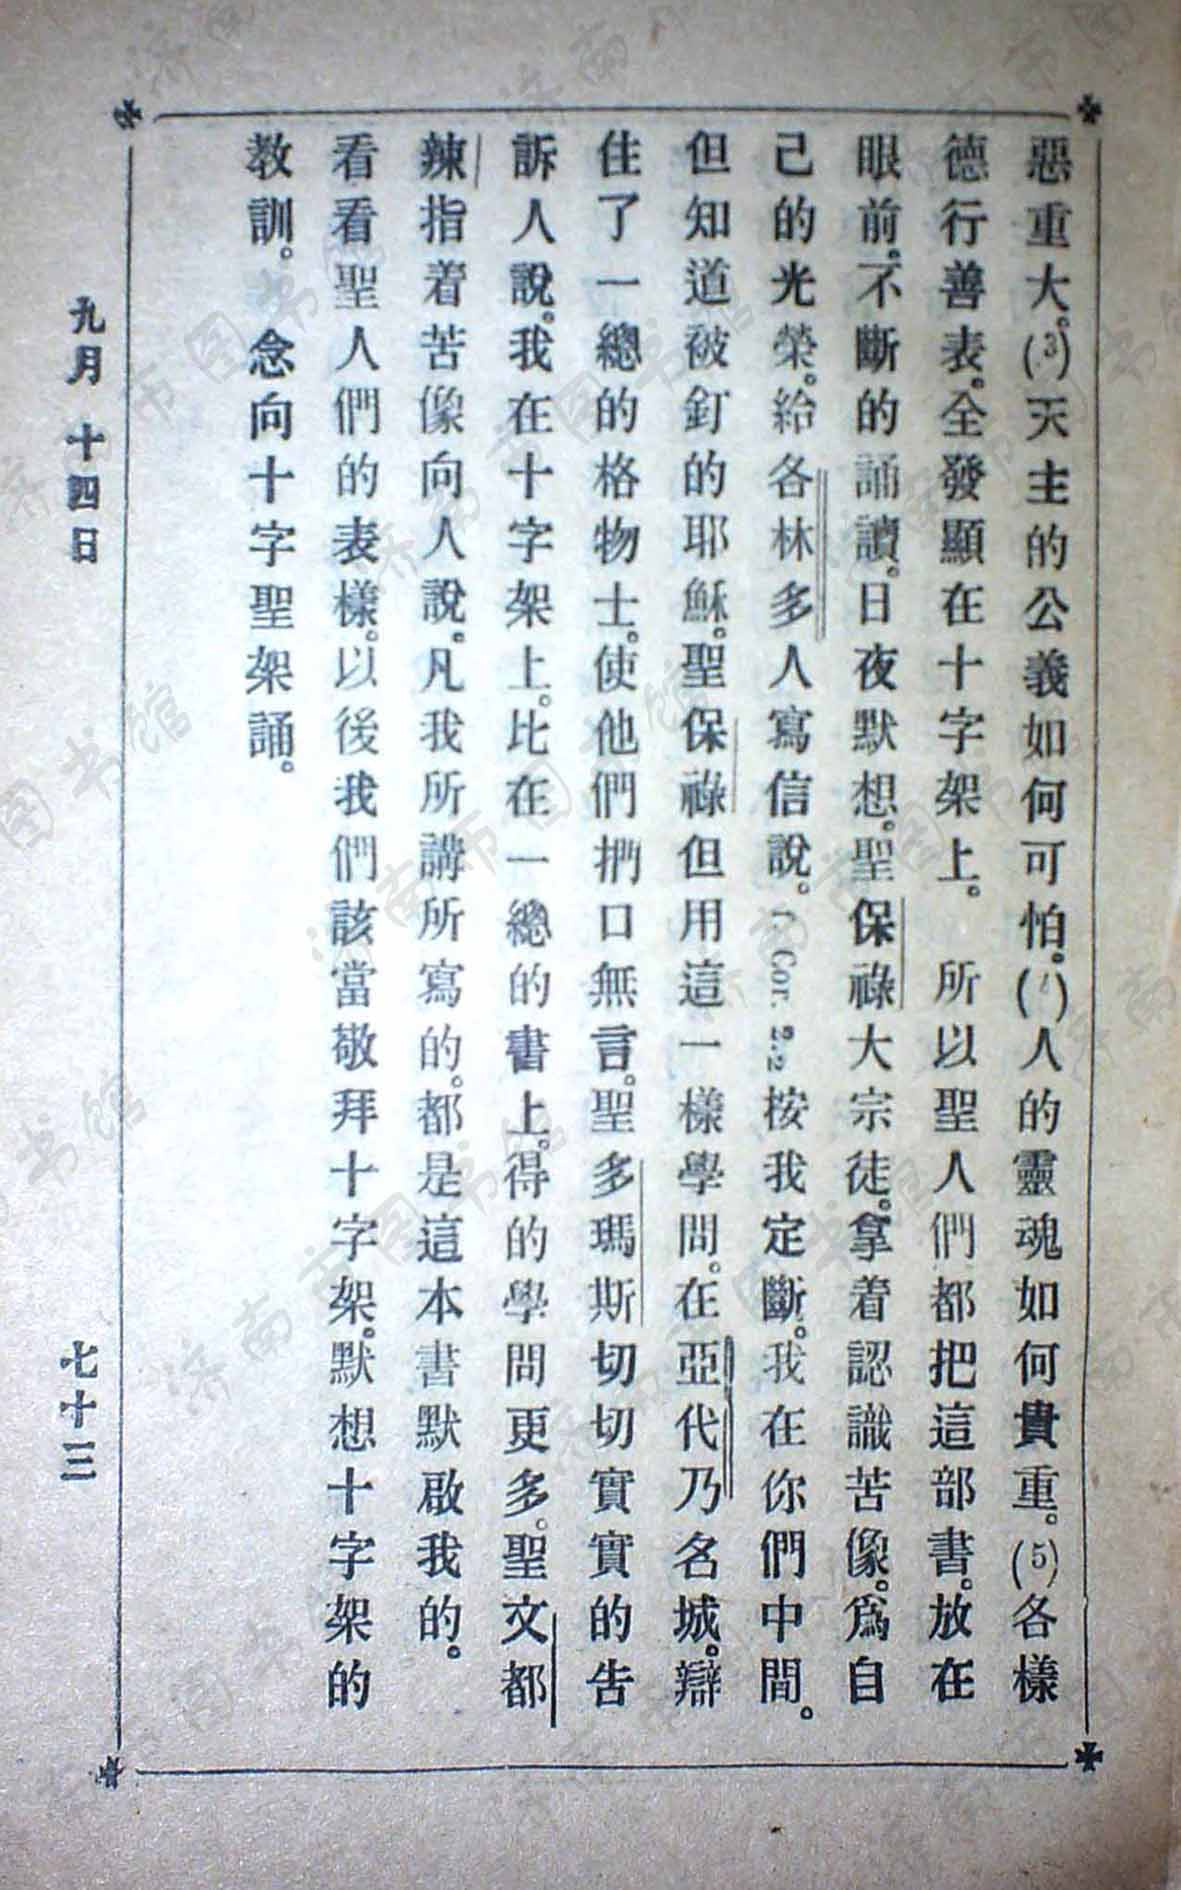 惡重大。(3)天主的公義如何可怕。(4)人的靈魂如何貴重。(5)各樣
德行善表。全發顯在十字架上。 所以聖人們都把這部書。放在
眼前。不斷的誦讀。日夜默想。聖保祿大宗徒。拿着認識苦像。爲自
己的光榮。給各林多人寫信說。I. Cor. 2.2 按我定斷。我在你們中間。
但知道被釘的耶穌。聖保祿但用這一樣學問。在亞代乃名城。辯
住了一總的格物士。使他們捫口無言。聖多瑪斯切切實實的告
訴人說。我在十字架上。比在一總的書上。得的學問更多。聖文都
辣指着苦像向人說。凡我所講所寫的。都是這本書默啟我的。
看看聖人們的表樣。以後我們該當敬拜十字架。默想十字架的
教訓。 念向十字聖架誦。
九月 十四日 七十三
济南市图书馆